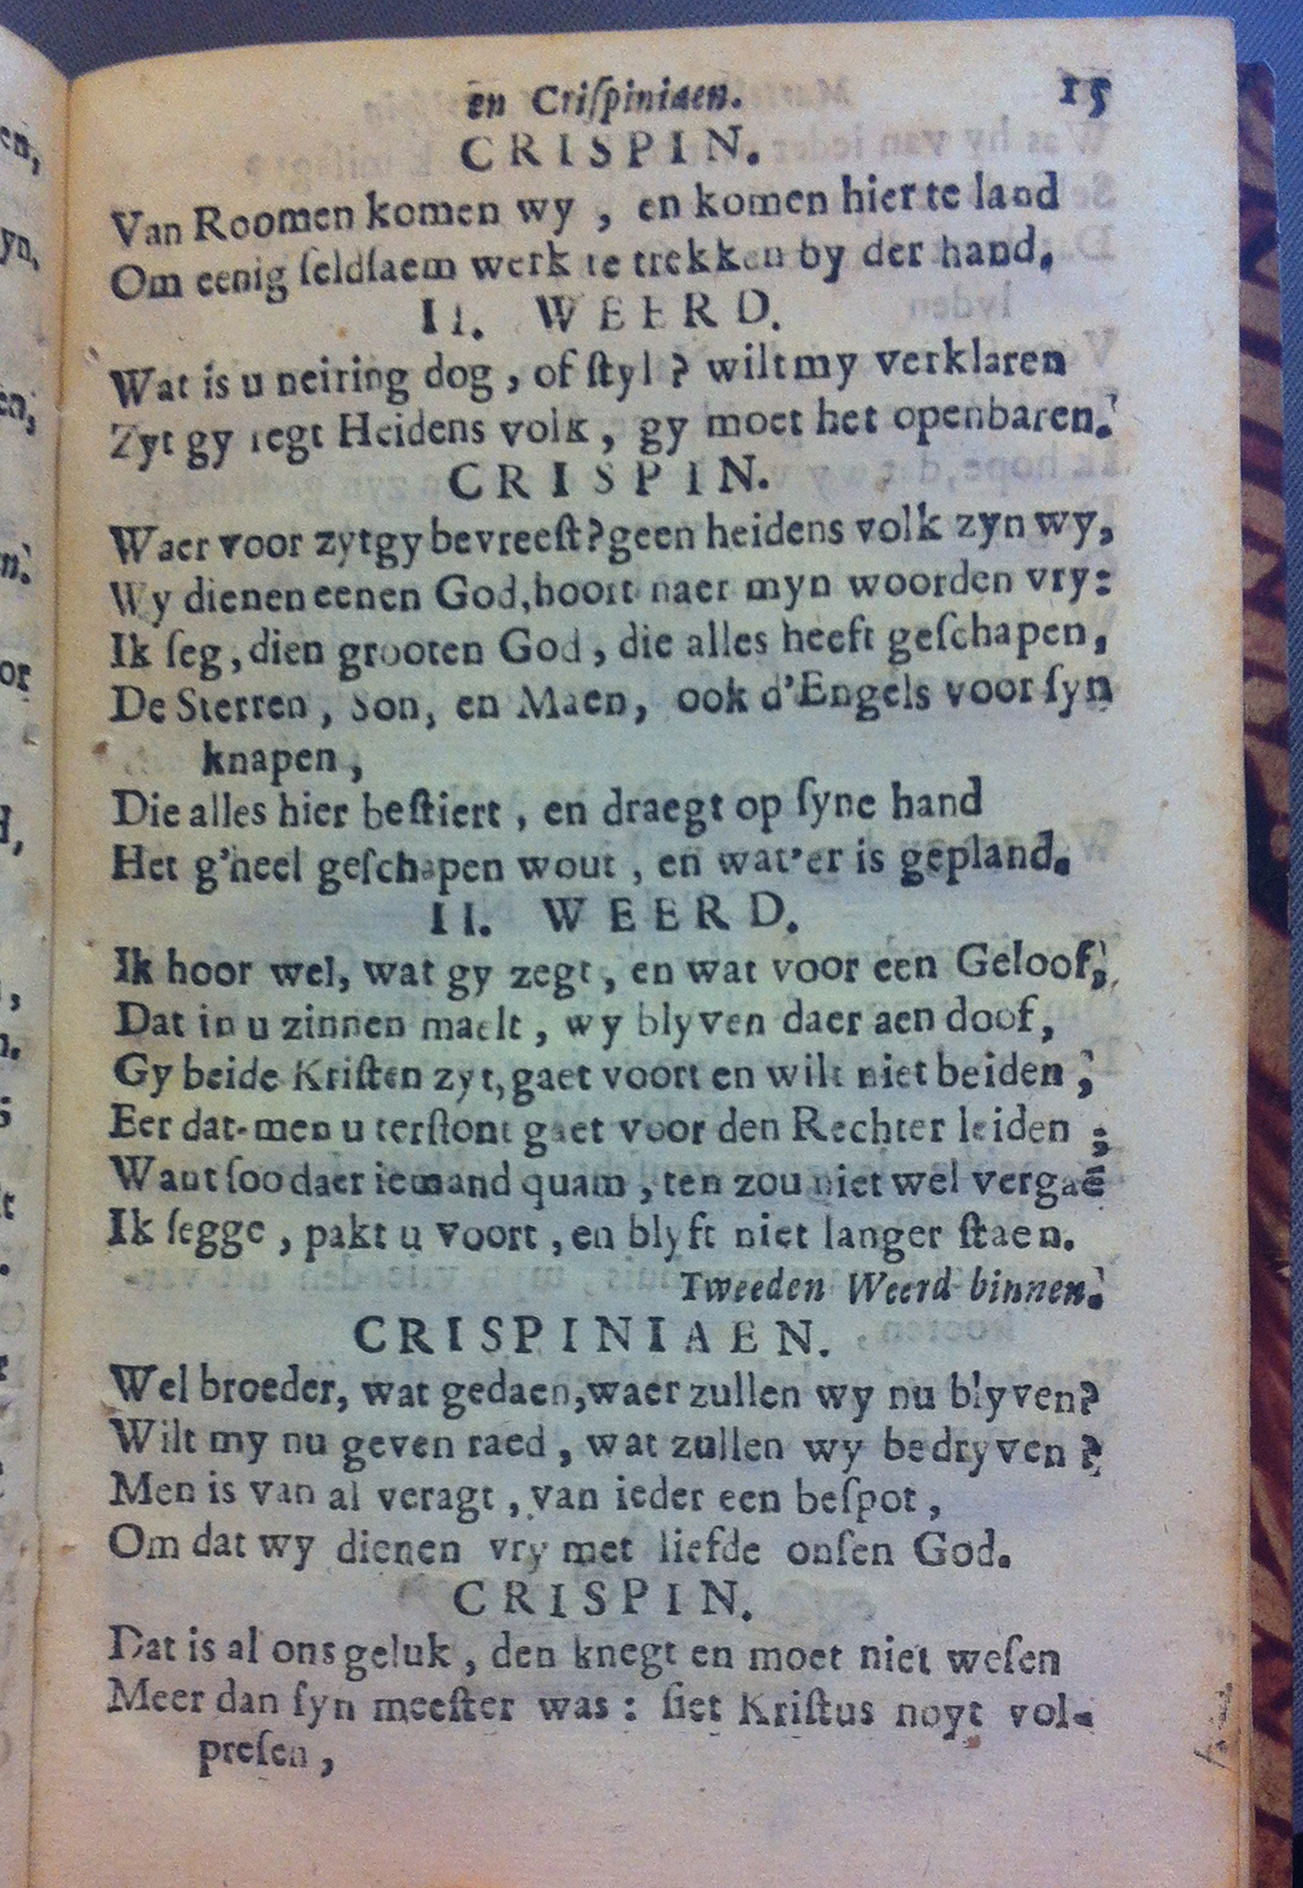 en Criſpiniaen. 15
CRISPIN.
Van Roomen komen wy , en komen hier te land
Om eenig ſeldſaem werk te trekken by der hand.
II. WEERD.
Wat is u neiring dog , of ſtyl ? wilt my verklaren
Zyt gy regt Heidens volk , gy moet het openbaren.
CRISPIN.
Waer voor zyt gy bevreeſt? geen heidens volk zyn wy,
Wy dienen eenen God, hoort naer myn woorden vry:
Ik ſeg, dien grooten God , die alles heeft geſchapen,
De Sterren , Son, en Maen, ook d'Engels voor ſyn
knapen ,
Die alles hier beſtiert , en draegt op ſyne hand
Het g'heel geſchapen wout , en wat'er is gepland.
II. WEERD.
Ik hoor wel, wat gy zegt , en wat voor een Geloof,
Dat in u zinnen maelt , wy blyven daer aen doof,
Gy beide Kriſten zyt, gaet voort en wilt niet beiden ,
Eer dat-men u terſtont gaet voor den Rechter leiden ;
Want ſoo daer iemand quam , ten zou niet wel vergaē
Ik ſegge , pakt u voort , en blyft niet langer ſtaen.
Tweeden Weerd binnen.
CRISPINIAEN.
Wel broeder, wat gedaen, waer zullen wy nu blyven?
Wilt my nu geven raed , wat zullen wy bedryven ?
Men is van al veragt , van ieder een beſpot ,
Om dat wy dienen vry met liefde onſen God.
CRISPIN.
Dat is al ons geluk , den knegt en moet niet weſen
Meer dan ſyn meeſter was : ſiet Kriſtus noyt vol-
preſen ,